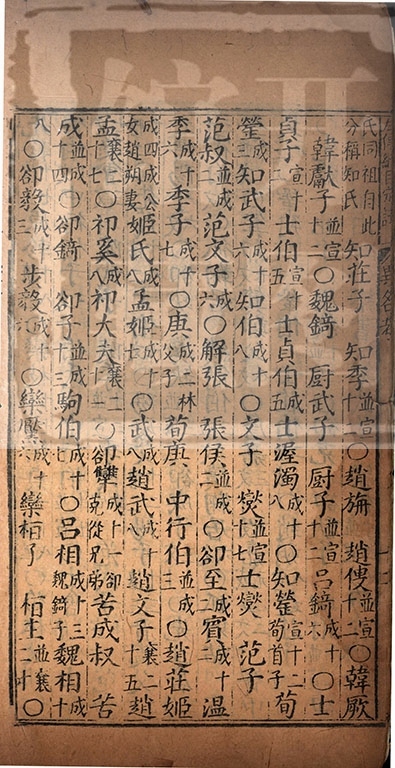 氏同祖自此分稱知氏 知莊子 知季並宣十二○趙旃 趙傁並宣十二○韓厥
韓獻子並宣十二○魏錡 厨武子 厨子並宣十二 呂錡成十六○士
貞子宣十二 士伯宣十五 士貞伯成五 士渥濁成十八○知罃宣十二荀首子 荀
罃成三 知武子成十六 知伯成十八○文子 燮並宣十七 士燮 范子
范叔並成二 范文子成六○解張 張侯並成二○郤至成二 溫
季成十六 季子成十七○庚成二林父子 荀庚 中行伯並成三○趙莊姬
成四成公女趙朔妻 姬氏成八 孟姬成十七○武成八 趙武成十八 趙文子襄二十五 趙
孟襄二十七○祁奚成八 祁大夫襄二十一○郤犨成十一郤克從兄弟 苦成叔 苦
成並成十四○郤錡 郤子並成十三 駒伯成十七○呂相成十三魏錡子 魏相成十
八○郤毅成十三 步毅成十六○欒黶成十六 欒桓子 桓主並襄二十○